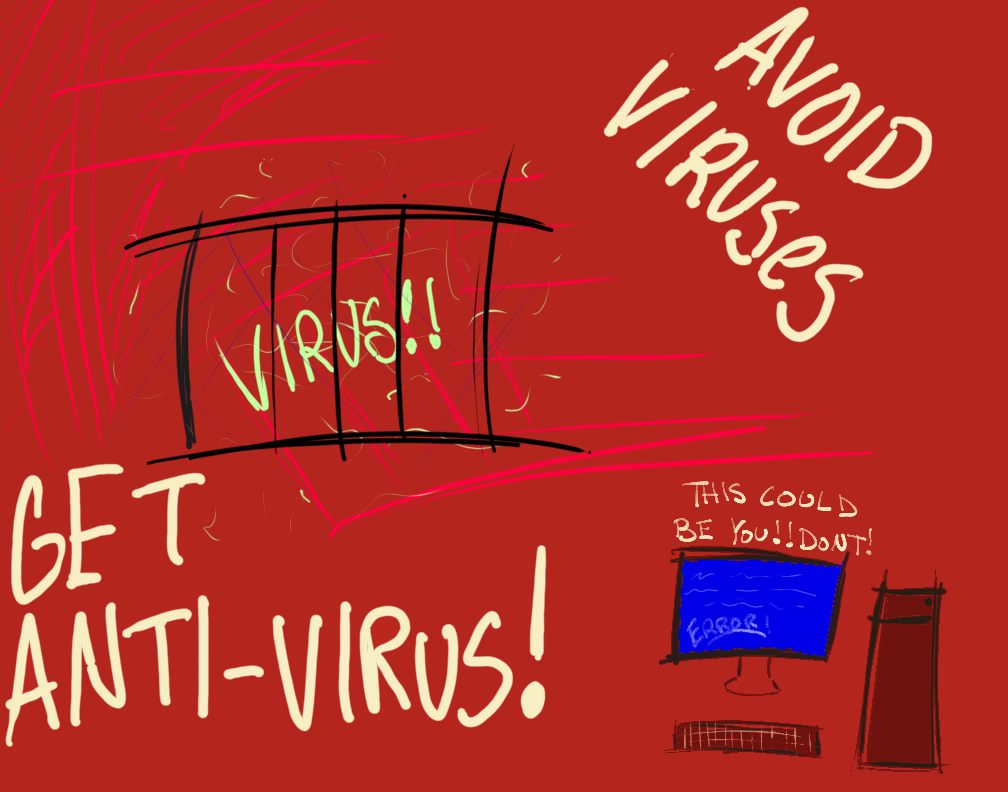 AVOID
VIRUSeS
VIRUS!!
GET
ANTI-VIRUS!
THIS COULD
BE YOU!! DONT!
ERROR!